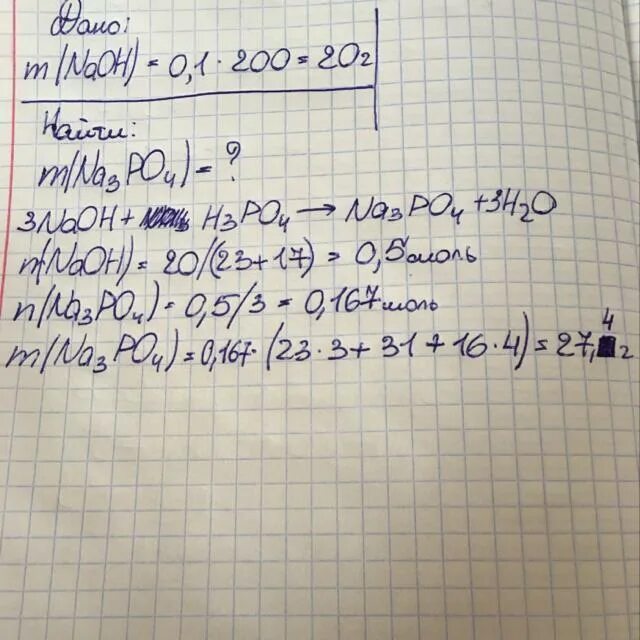 Дано:
m(NaOH) = 0,1 · 200 = 20г
Найти:
m(Na₃PO₄) = ?
3NaOH + H₃PO₄ → Na₃PO₄ + 3H₂O
n(NaOH) = 20/(23+17) = 0,5 моль
n(Na₃PO₄) = 0,5/3 = 0,167 моль
m(Na₃PO₄) = 0,167 · (23·3 + 31 + 16·4) = 27,4г